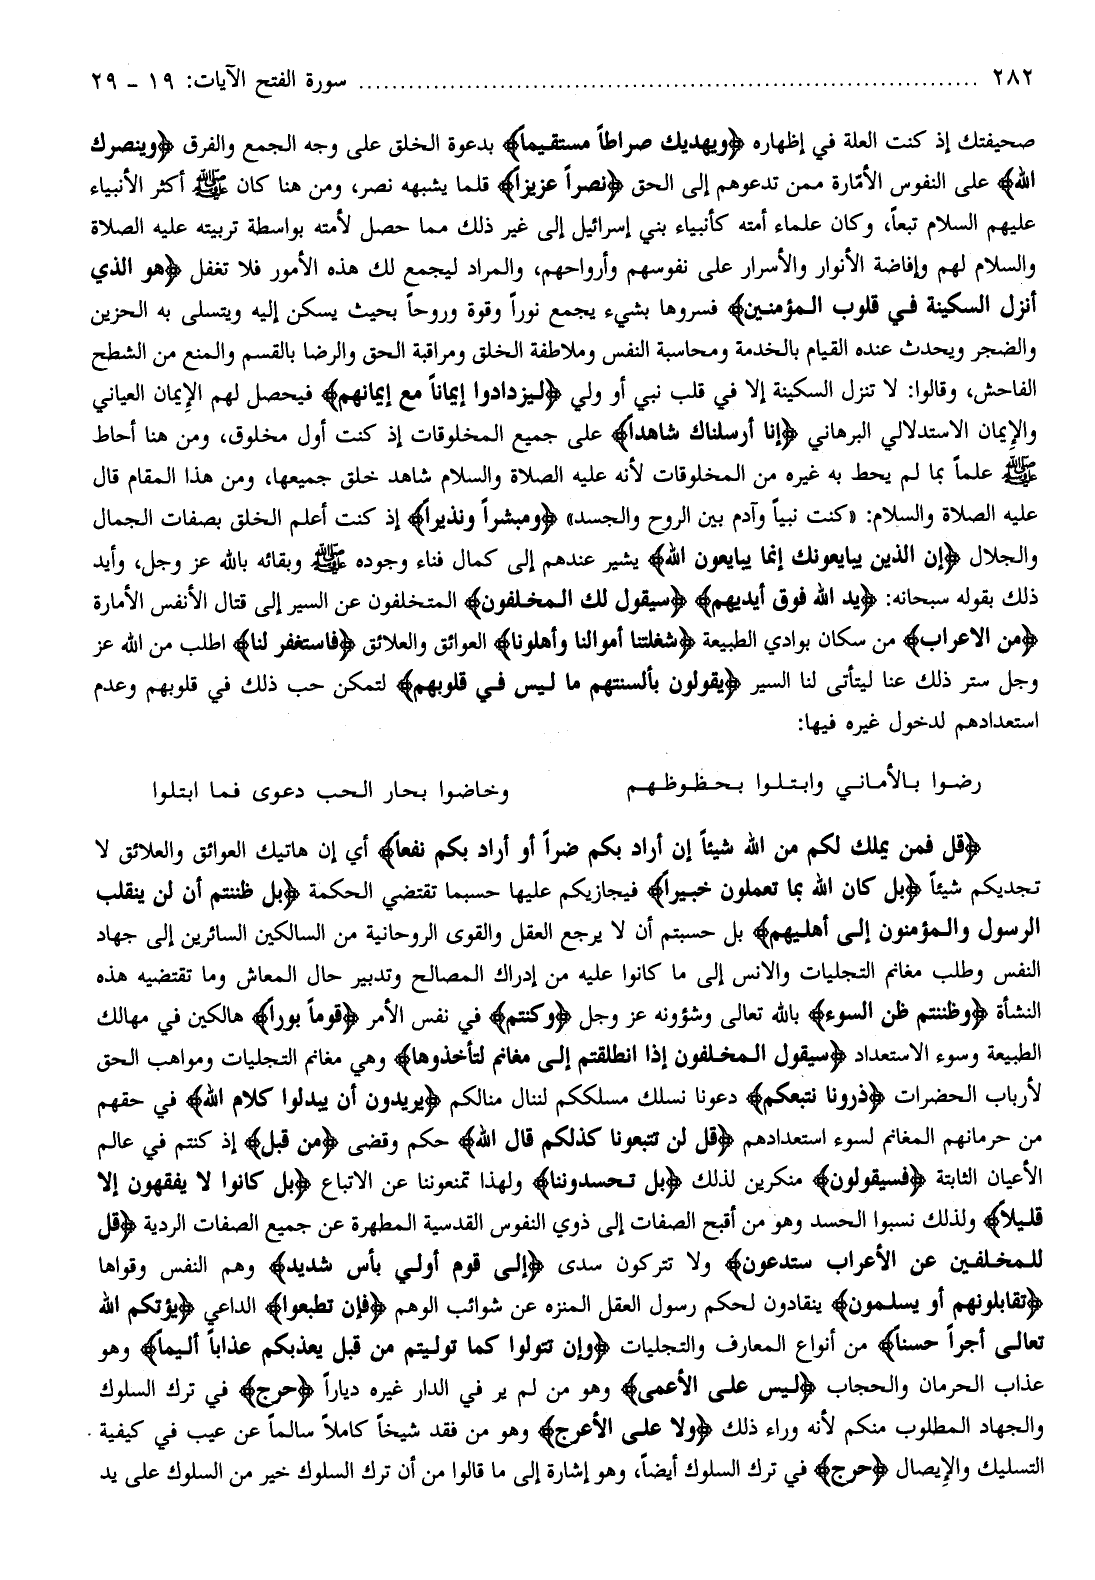 ٢٨٢ ........................................ سورة الفتح الآيات: ١٩ - ٢٩
صحيفتك إذ كنت العلة في إظهاره ﴿ويهديك صراطاً مستقيماً﴾ بدعوة الخلق على وجه الجمع والفرق ﴿وينصرك
الله﴾ على النفوس الأمّارة ممن تدعوهم إلى الحق ﴿نصراً عزيزاً﴾ قلما يشبهه نصر، ومن هنا كان ﷺ أكثر الأنبياء
عليهم السلام تبعاً، وكان علماء أمته كأنبياء بني إسرائيل إلى غير ذلك مما حصل لأمته بواسطة تربيته عليه الصلاة
والسلام لهم وإفاضة الأنوار والأسرار على نفوسهم وأرواحهم، والمراد ليجمع لك هذه الأمور فلا تغفل ﴿هو الذي
أنزل السكينة في قلوب المؤمنين﴾ فسروها بشيء يجمع نوراً وقوة وروحاً بحيث يسكن إليه ويتسلى به الحزين
والضجر ويحدث عنده القيام بالخدمة ومحاسبة النفس وملاطفة الخلق ومراقبة الحق والرضا بالقسم والمنع من الشطح
الفاحش، وقالوا: لا تنزل السكينة إلا في قلب نبي أو ولي ﴿ليزدادوا إيماناً مع إيمانهم﴾ فيحصل لهم الإيمان العياني
والإيمان الاستدلالي البرهاني ﴿إنا أرسلناك شاهداً﴾ على جميع المخلوقات إذ كنت أول مخلوق، ومن هنا أحاط
ﷺ علماً بما لم يحط به غيره من المخلوقات لأنه عليه الصلاة والسلام شاهد خلق جميعها، ومن هذا المقام قال
عليه الصلاة والسلام: «كنت نبياً وآدم بين الروح والجسد» ﴿ومبشراً ونذيراً﴾ إذ كنت أعلم الخلق بصفات الجمال
والجلال ﴿إن الذين يبايعونك إنما يبايعون الله﴾ يشير عندهم إلى كمال فناء وجوده ﷺ وبقائه بالله عز وجل، وأيد
ذلك بقوله سبحانه: ﴿يد الله فوق أيديهم﴾ ﴿سيقول لك المخلفون﴾ المتخلفون عن السير إلى قتال الأنفس الأمارة
﴿من الاعراب﴾ من سكان بوادي الطبيعة ﴿شغلتنا أموالنا وأهلونا﴾ العوائق والعلائق ﴿فاستغفر لنا﴾ اطلب من الله عز
وجل ستر ذلك عنا ليتأتى لنا السير ﴿يقولون بألسنتهم ما ليس في قلوبهم﴾ لتمكن حب ذلك في قلوبهم وعدم
استعدادهم لدخول غيره فيها:
رضوا بالأماني وابتلوا بحظوظهم وخاضوا بحار الحب دعوى فما ابتلوا
﴿قل فمن يملك لكم من الله شيئاً إن أراد بكم ضراً أو أراد بكم نفعاً﴾ أي إن هاتيك العوائق والعلائق لا
تجديكم شيئاً ﴿بل كان الله بما تعملون خبيراً﴾ فيجازيكم عليها حسبما تقتضي الحكمة ﴿بل ظننتم أن لن ينقلب
الرسول والمؤمنون إلى أهليهم﴾ بل حسبتم أن لا يرجع العقل والقوى الروحانية من السالكين السائرين إلى جهاد
النفس وطلب مغانم التجليات والانس إلى ما كانوا عليه من إدراك المصالح وتدبير حال المعاش وما تقتضيه هذه
النشأة ﴿وظننتم ظن السوء﴾ بالله تعالى وشؤونه عز وجل ﴿وكنتم﴾ في نفس الأمر ﴿قوماً بوراً﴾ هالكين في مهالك
الطبيعة وسوء الاستعداد ﴿سيقول المخلفون إذا انطلقتم إلى مغانم لتأخذوها﴾ وهي مغانم التجليات ومواهب الحق
لأرباب الحضرات ﴿ذرونا نتبعكم﴾ دعونا نسلك مسلككم لننال منالكم ﴿يريدون أن يبدلوا كلام الله﴾ في حقهم
من حرمانهم المغانم لسوء استعدادهم ﴿قل لن تتبعونا كذلكم قال الله﴾ حكم وقضى ﴿من قبل﴾ إذ كنتم في عالم
الأعيان الثابتة ﴿فسيقولون﴾ منكرين لذلك ﴿بل تحسدوننا﴾ ولهذا تمنعوننا عن الاتباع ﴿بل كانوا لا يفقهون إلا
قليلاً﴾ ولذلك نسبوا الحسد وهو من أقبح الصفات إلى ذوي النفوس القدسية المطهرة عن جميع الصفات الردية ﴿قل
للمخلفين عن الأعراب ستدعون﴾ ولا تتركون سدى ﴿إلى قوم أولي بأس شديد﴾ وهم النفس وقواها
﴿تقابلونهم أو يسلمون﴾ ينقادون لحكم رسول العقل المنزه عن شوائب الوهم ﴿فإن تطبعوا﴾ الداعي ﴿يؤتكم الله
تعالى أجراً حسناً﴾ من أنواع المعارف والتجليات ﴿وإن تتولوا كما توليتم من قبل يعذبكم عذاباً أليماً﴾ وهو
عذاب الحرمان والحجاب ﴿ليس على الأعمى﴾ وهو من لم ير في الدار غيره دياراً ﴿حرج﴾ في ترك السلوك
والجهاد المطلوب منكم لأنه وراء ذلك ﴿ولا على الأعرج﴾ وهو من فقد شيخاً كاملاً سالماً عن عيب في كيفية
التسليك والإيصال ﴿حرج﴾ في ترك السلوك أيضاً، وهو إشارة إلى ما قالوا من أن ترك السلوك خير من السلوك على يد